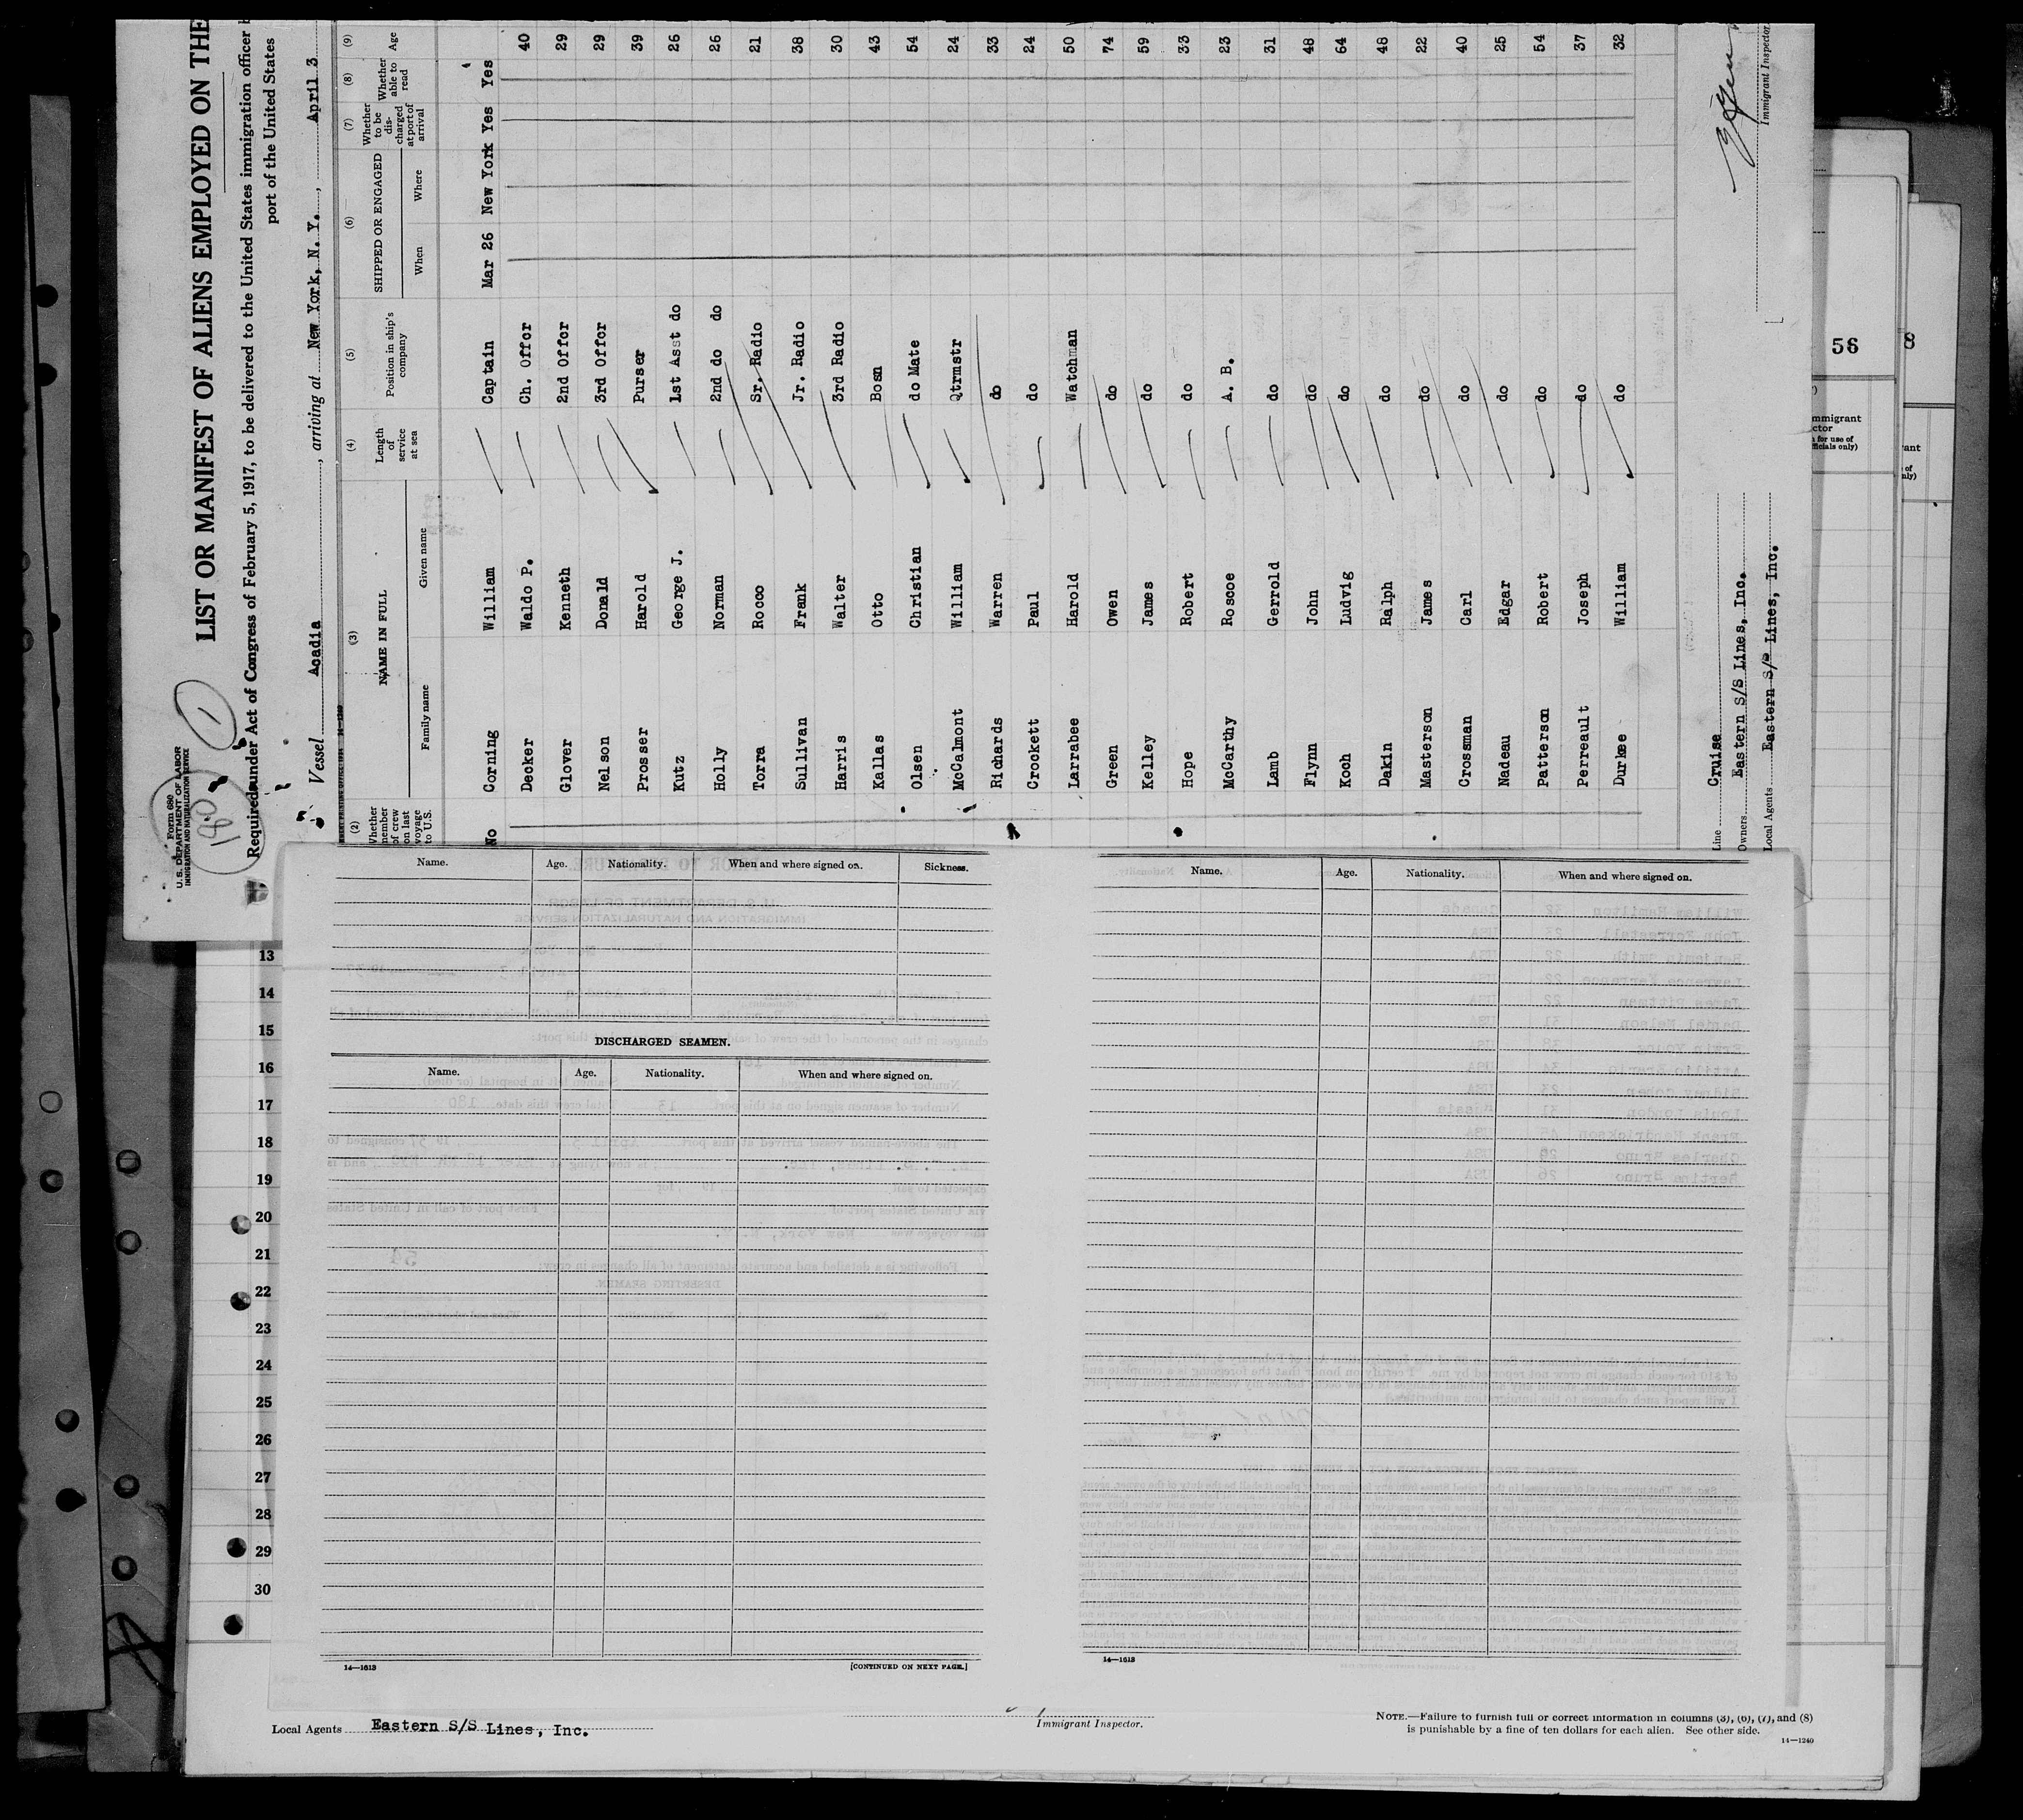 Form 680
U. S. DEPARTMENT OF LABOR
IMMIGRATION AND NATURALIZATION SERVICE
180
1
LIST OR MANIFEST OF ALIENS EMPLOYED ON THE
Required under Act of Congress of February 5, 1917, to be delivered to the United States immigration officer
port of the United States
Vessel Acadia, arriving at New York, N. Y., April 3
(2) (3) (4) (5) (6) (7) (8) (9)
Whether member of crew on last voyage to U.S. NAME IN FULL Length of service at sea Position in ship's company SHIPPED OR ENGAGED Whether to be discharged at port of arrival Whether able to read Age
Family name Given name When Where
No Corning William Captain Mar 26 New York Yes Yes
Decker Waldo P. Ch. Offcr 40
Glover Kenneth 2nd Offcr 29
Nelson Donald 3rd Offcr 29
Prosser Harold Purser 39
Kutz George J. 1st Asst do 26
Holly Norman 2nd do do 26
Torra Rocco Sr. Radio 21
Sullivan Frank Jr. Radio 38
Harris Walter 3rd Radio 30
Kallas Otto Bosn 43
Olsen Christian do Mate 54
McCalmont William Qtrmstr 24
Richards Warren do 33
Crockett Paul do 24
Larrabee Harold Watchman 50
Green Owen do 74
Kelley James do 59
Hope Robert do 33
McCarthy Roscoe A. B. 23
Lamb Gerrold do 31
Flynn John do 48
Koch Ludvig do 64
Dakin Ralph do 48
Masterson James do 22
Crossman Carl do 40
Nadeau Edgar do 25
Patterson Robert do 54
Perreault Joseph do 37
Durkee William do 32
Line Cruise
Owners Eastern S/S Lines, Inc.
Local Agents Eastern S/S Lines, Inc.
Immigrant Inspector
56
Name. Age. Nationality. When and where signed on. Sickness.
DISCHARGED SEAMEN.
Name. Age. Nationality. When and where signed on.
14—1613
[CONTINUED ON NEXT PAGE.]
Name. Age. Nationality. When and where signed on.
14—1613
13
14
15
16
17
18
19
20
21
22
23
24
25
26
27
28
29
30
Local Agents Eastern S/S Lines, Inc.
Immigrant Inspector.
NOTE.—Failure to furnish full or correct information in columns (3), (6), (7), and (8)
is punishable by a fine of ten dollars for each alien. See other side.
14—1240